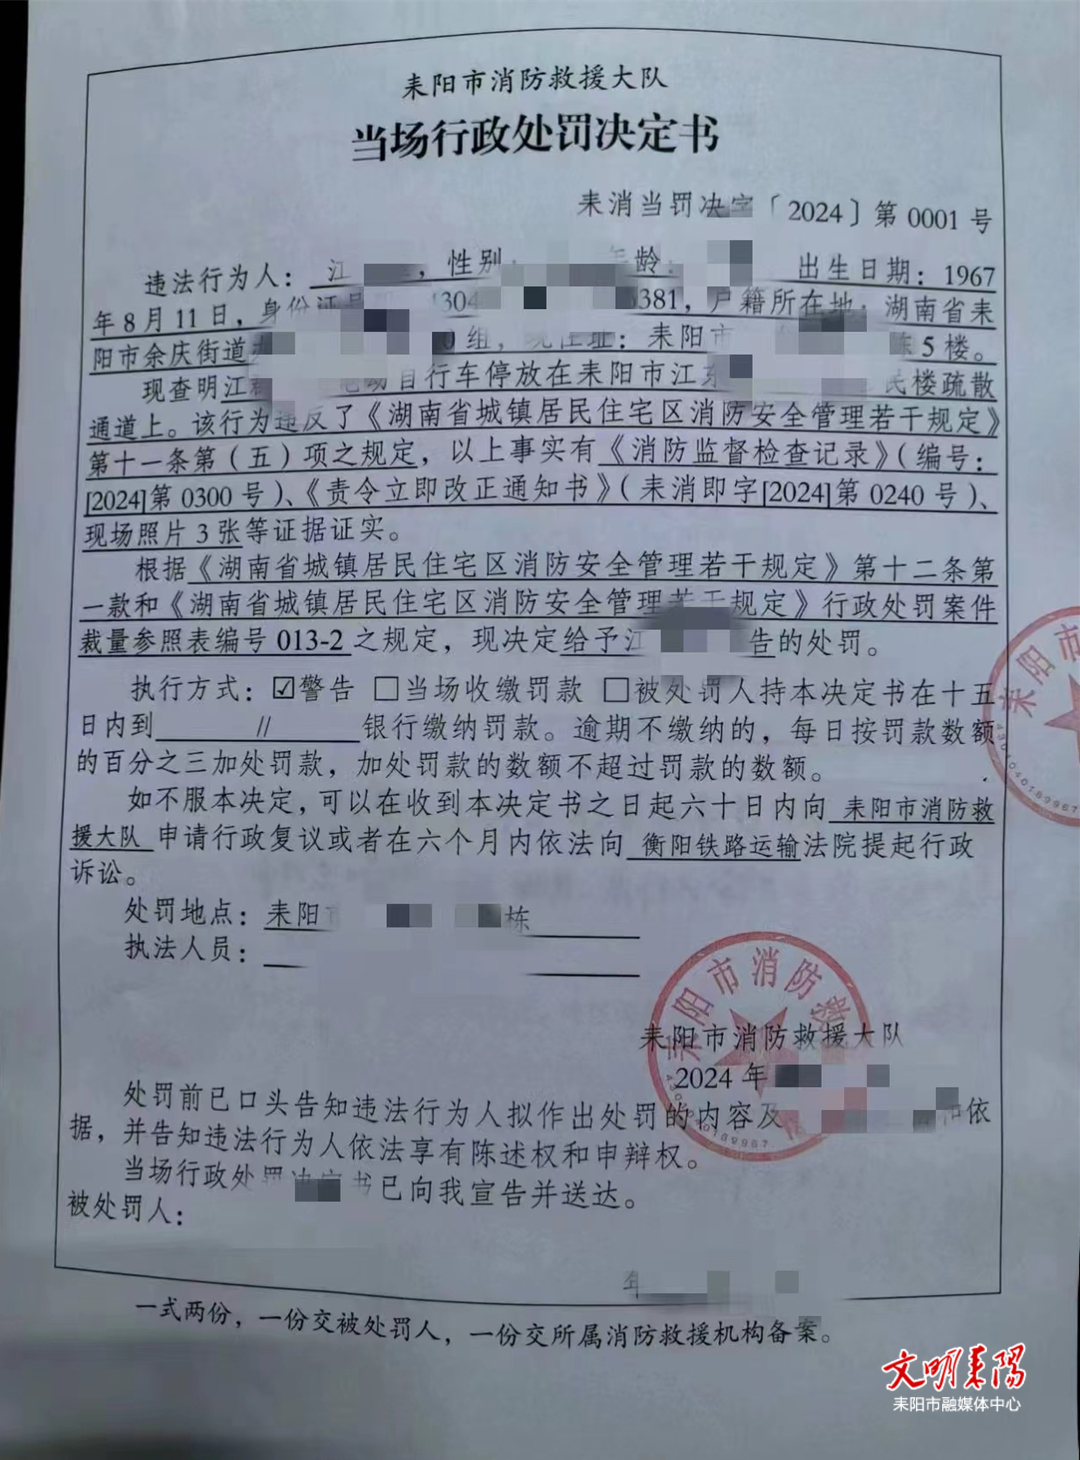 耒阳市消防救援大队
当场行政处罚决定书
耒消当罚决字〔2024〕第 0001 号
违法行为人：江，性别：年龄：出生日期：1967
年 8 月 11 日，身份证号 1304 0381，户籍所在地：湖南省耒
阳市余庆街道 0 组，现住址：耒阳市 栋 5 楼。
现查明江 自行车停放在耒阳市江东 民楼疏散
通道上。该行为违反了《湖南省城镇居民住宅区消防安全管理若干规定》
第十一条第（五）项之规定，以上事实有《消防监督检查记录》（编号：
[2024]第 0300 号）、《责令立即改正通知书》（耒消即字[2024]第 0240 号）、
现场照片 3 张等证据证实。
根据《湖南省城镇居民住宅区消防安全管理若干规定》第十二条第
一款和《湖南省城镇居民住宅区消防安全管理若干规定》行政处罚案件
裁量参照表编号 013-2 之规定，现决定给予江 告的处罚。
执行方式：☑警告 □当场收缴罚款 □被处罚人持本决定书在十五
日内到 // 银行缴纳罚款。逾期不缴纳的，每日按罚款数额
的百分之三加处罚款，加处罚款的数额不超过罚款的数额。
如不服本决定，可以在收到本决定书之日起六十日内向 耒阳市消防救
援大队 申请行政复议或者在六个月内依法向 衡阳铁路运输法院提起行政
诉讼。
处罚地点：耒阳 栋
执法人员：
耒阳市消防救援大队
2024 年
处罚前已口头告知违法行为人拟作出处罚的内容及 依
据，并告知违法行为人依法享有陈述权和申辩权。
当场行政处罚决定书已向我宣告并送达。
被处罚人：
年
一式两份，一份交被处罚人，一份交所属消防救援机构备案。
文明耒陽
耒阳市融媒体中心